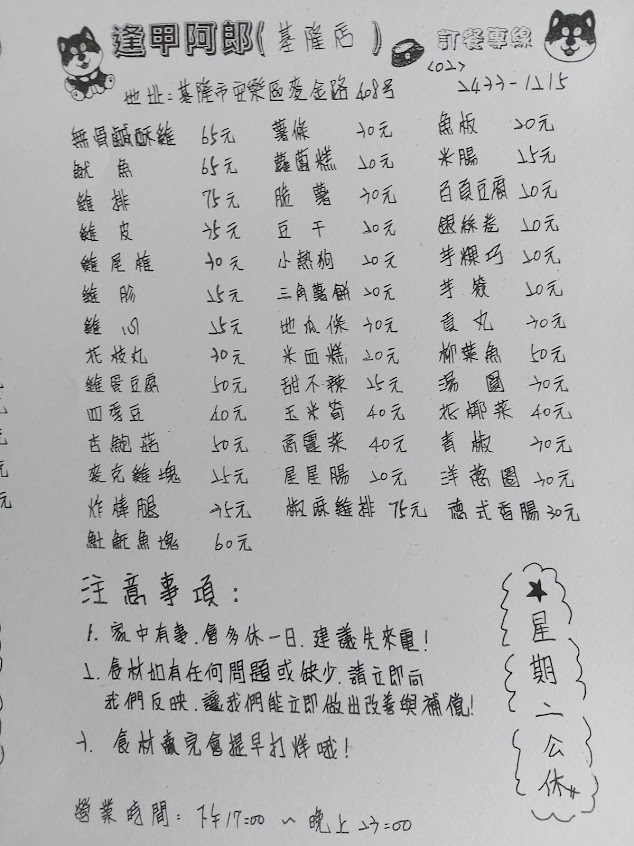 逢甲阿郎(基隆店) 訂餐專線
地址:基隆市安樂區麥金路408號 (02) 2433-1215
無骨鹹酥雞 65元 薯條 30元 魚板 20元
魷魚 65元 蘿蔔糕 20元 米腸 25元
雞排 75元 脆薯 30元 百頁豆腐 20元
雞皮 35元 豆干 20元 銀絲卷 20元
雞尾椎 30元 小熱狗 20元 芋粿巧 20元
雞肠 25元 三角薯餅 20元 芋簽 20元
雞心 25元 地瓜條 30元 貢丸 30元
花枝丸 30元 米血糕 20元 柳葉魚 50元
雞蛋豆腐 50元 甜不辣 25元 湯圓 30元
四季豆 40元 玉米筍 40元 花椰菜 40元
杏鮑菇 50元 高麗菜 40元 青椒 30元
麥克雞塊 25元 星星腸 20元 洋蔥圈 30元
炸棒腿 35元 椒麻雞排 75元 德式香腸 30元
魠魠魚塊 60元
注意事項:
1. 家中有事.會多休一日.建議先來電!
2. 食材如有任何問題或缺少.請立即向
我們反映.讓我們能立即做出改善與補償!
3. 食材賣完會提早打烊哦!
★星期二公休
營業時間: 下午17:00 ~ 晚上23:00